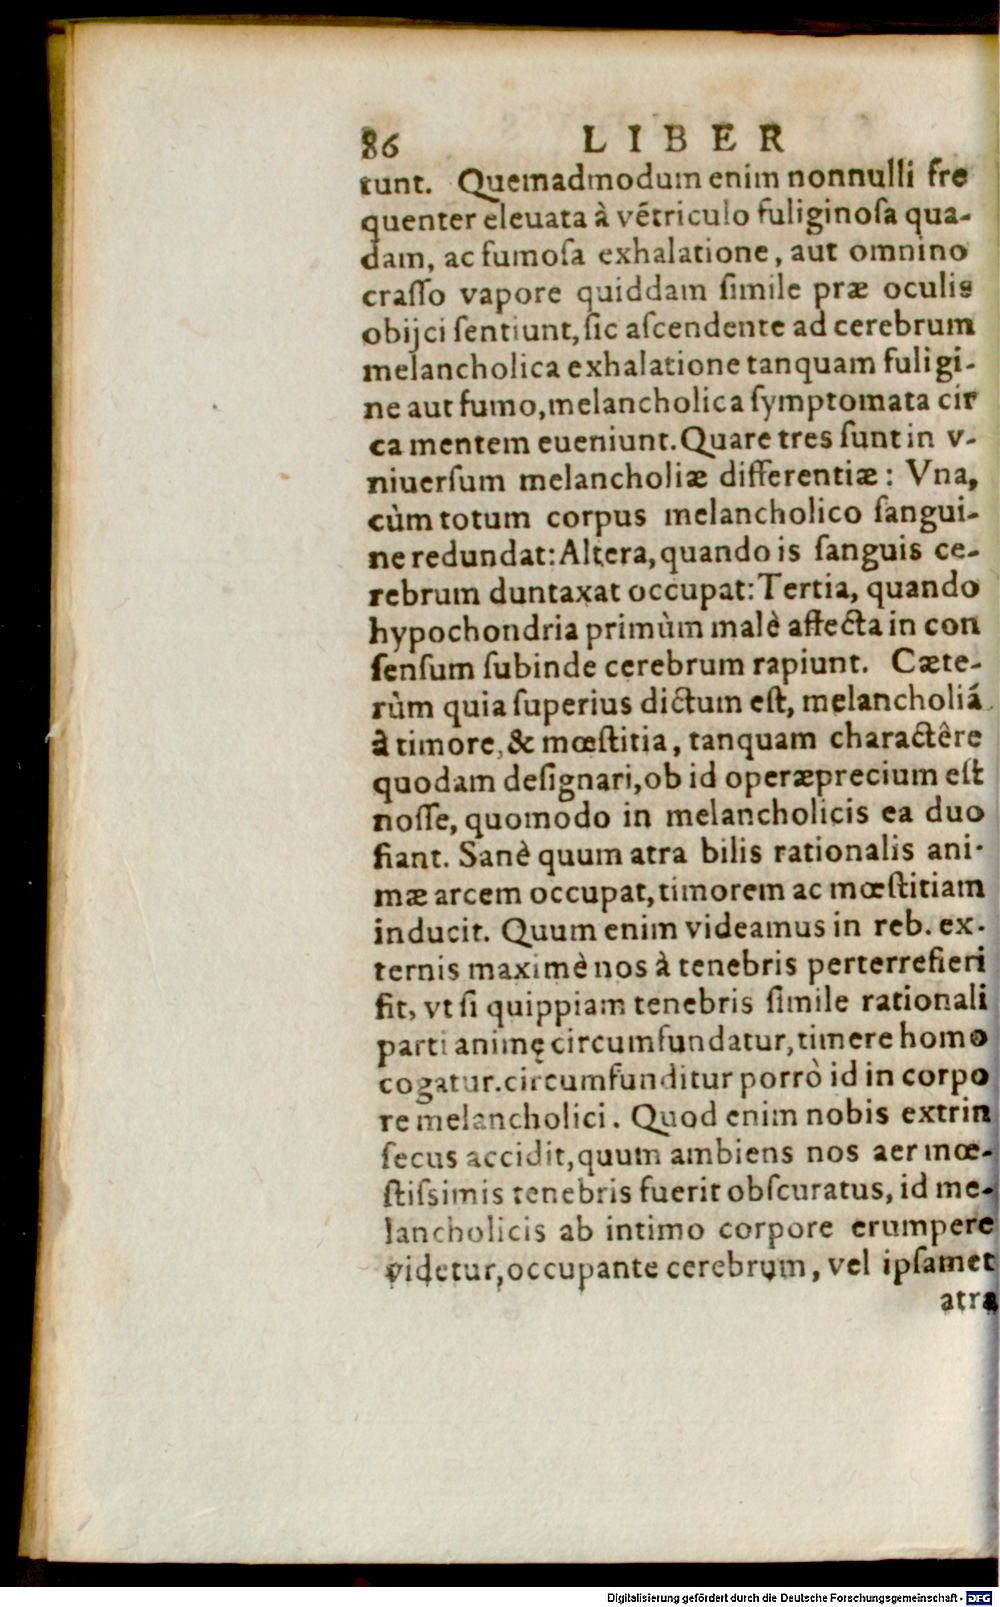 86 LIBER
tunt. Quemadmodum enim nonnulli fre
quenter eleuata à vẽtriculo fuliginoſa qua-
dam, ac fumoſa exhalatione, aut omnino
craſſo vapore quiddam ſimile præ oculis
obijci ſentiunt, ſic aſcendente ad cerebrum
melancholica exhalatione tanquam fuligi-
ne aut fumo, melancholica ſymptomata cir
ca mentem eueniunt. Quare tres ſunt in v-
niuerſum melancholiæ differentiæ: Vna,
cùm totum corpus melancholico ſangui-
ne redundat: Altera, quando is ſanguis ce-
rebrum duntaxat occupat: Tertia, quando
hypochondria primùm malè affecta in con
ſenſum ſubinde cerebrum rapiunt. Cæte-
rùm quia ſuperius dictum eſt, melancholiã
à timore, & mœſtitia, tanquam charactêre
quodam deſignari, ob id operæprecium eſt
noſſe, quomodo in melancholicis ea duo
fiant. Sanè quum atra bilis rationalis ani-
mæ arcem occupat, timorem ac mœſtitiam
inducit. Quum enim videamus in reb. ex-
ternis maximè nos à tenebris perterrefieri
fit, vt ſi quippiam tenebris ſimile rationali
parti animę circumfundatur, timere homo
cogatur. circumfunditur porrò id in corpo
re melancholici. Quod enim nobis extrin
ſecus accidit, quum ambiens nos aer mœ-
ſtiſsimis tenebris fuerit obſcuratus, id me-
lancholicis ab intimo corpore erumpere
videtur, occupante cerebrum, vel ipſamet
atra
Digitalisierung gefördert durch die Deutsche Forschungsgemeinschaft - DFG